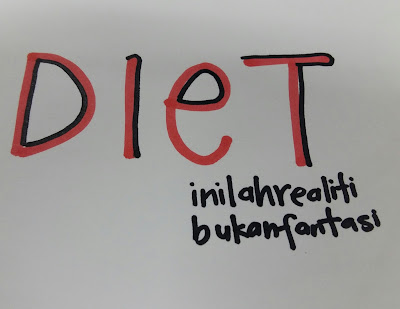 DIeT
inilahrealiti
bukanfantasi